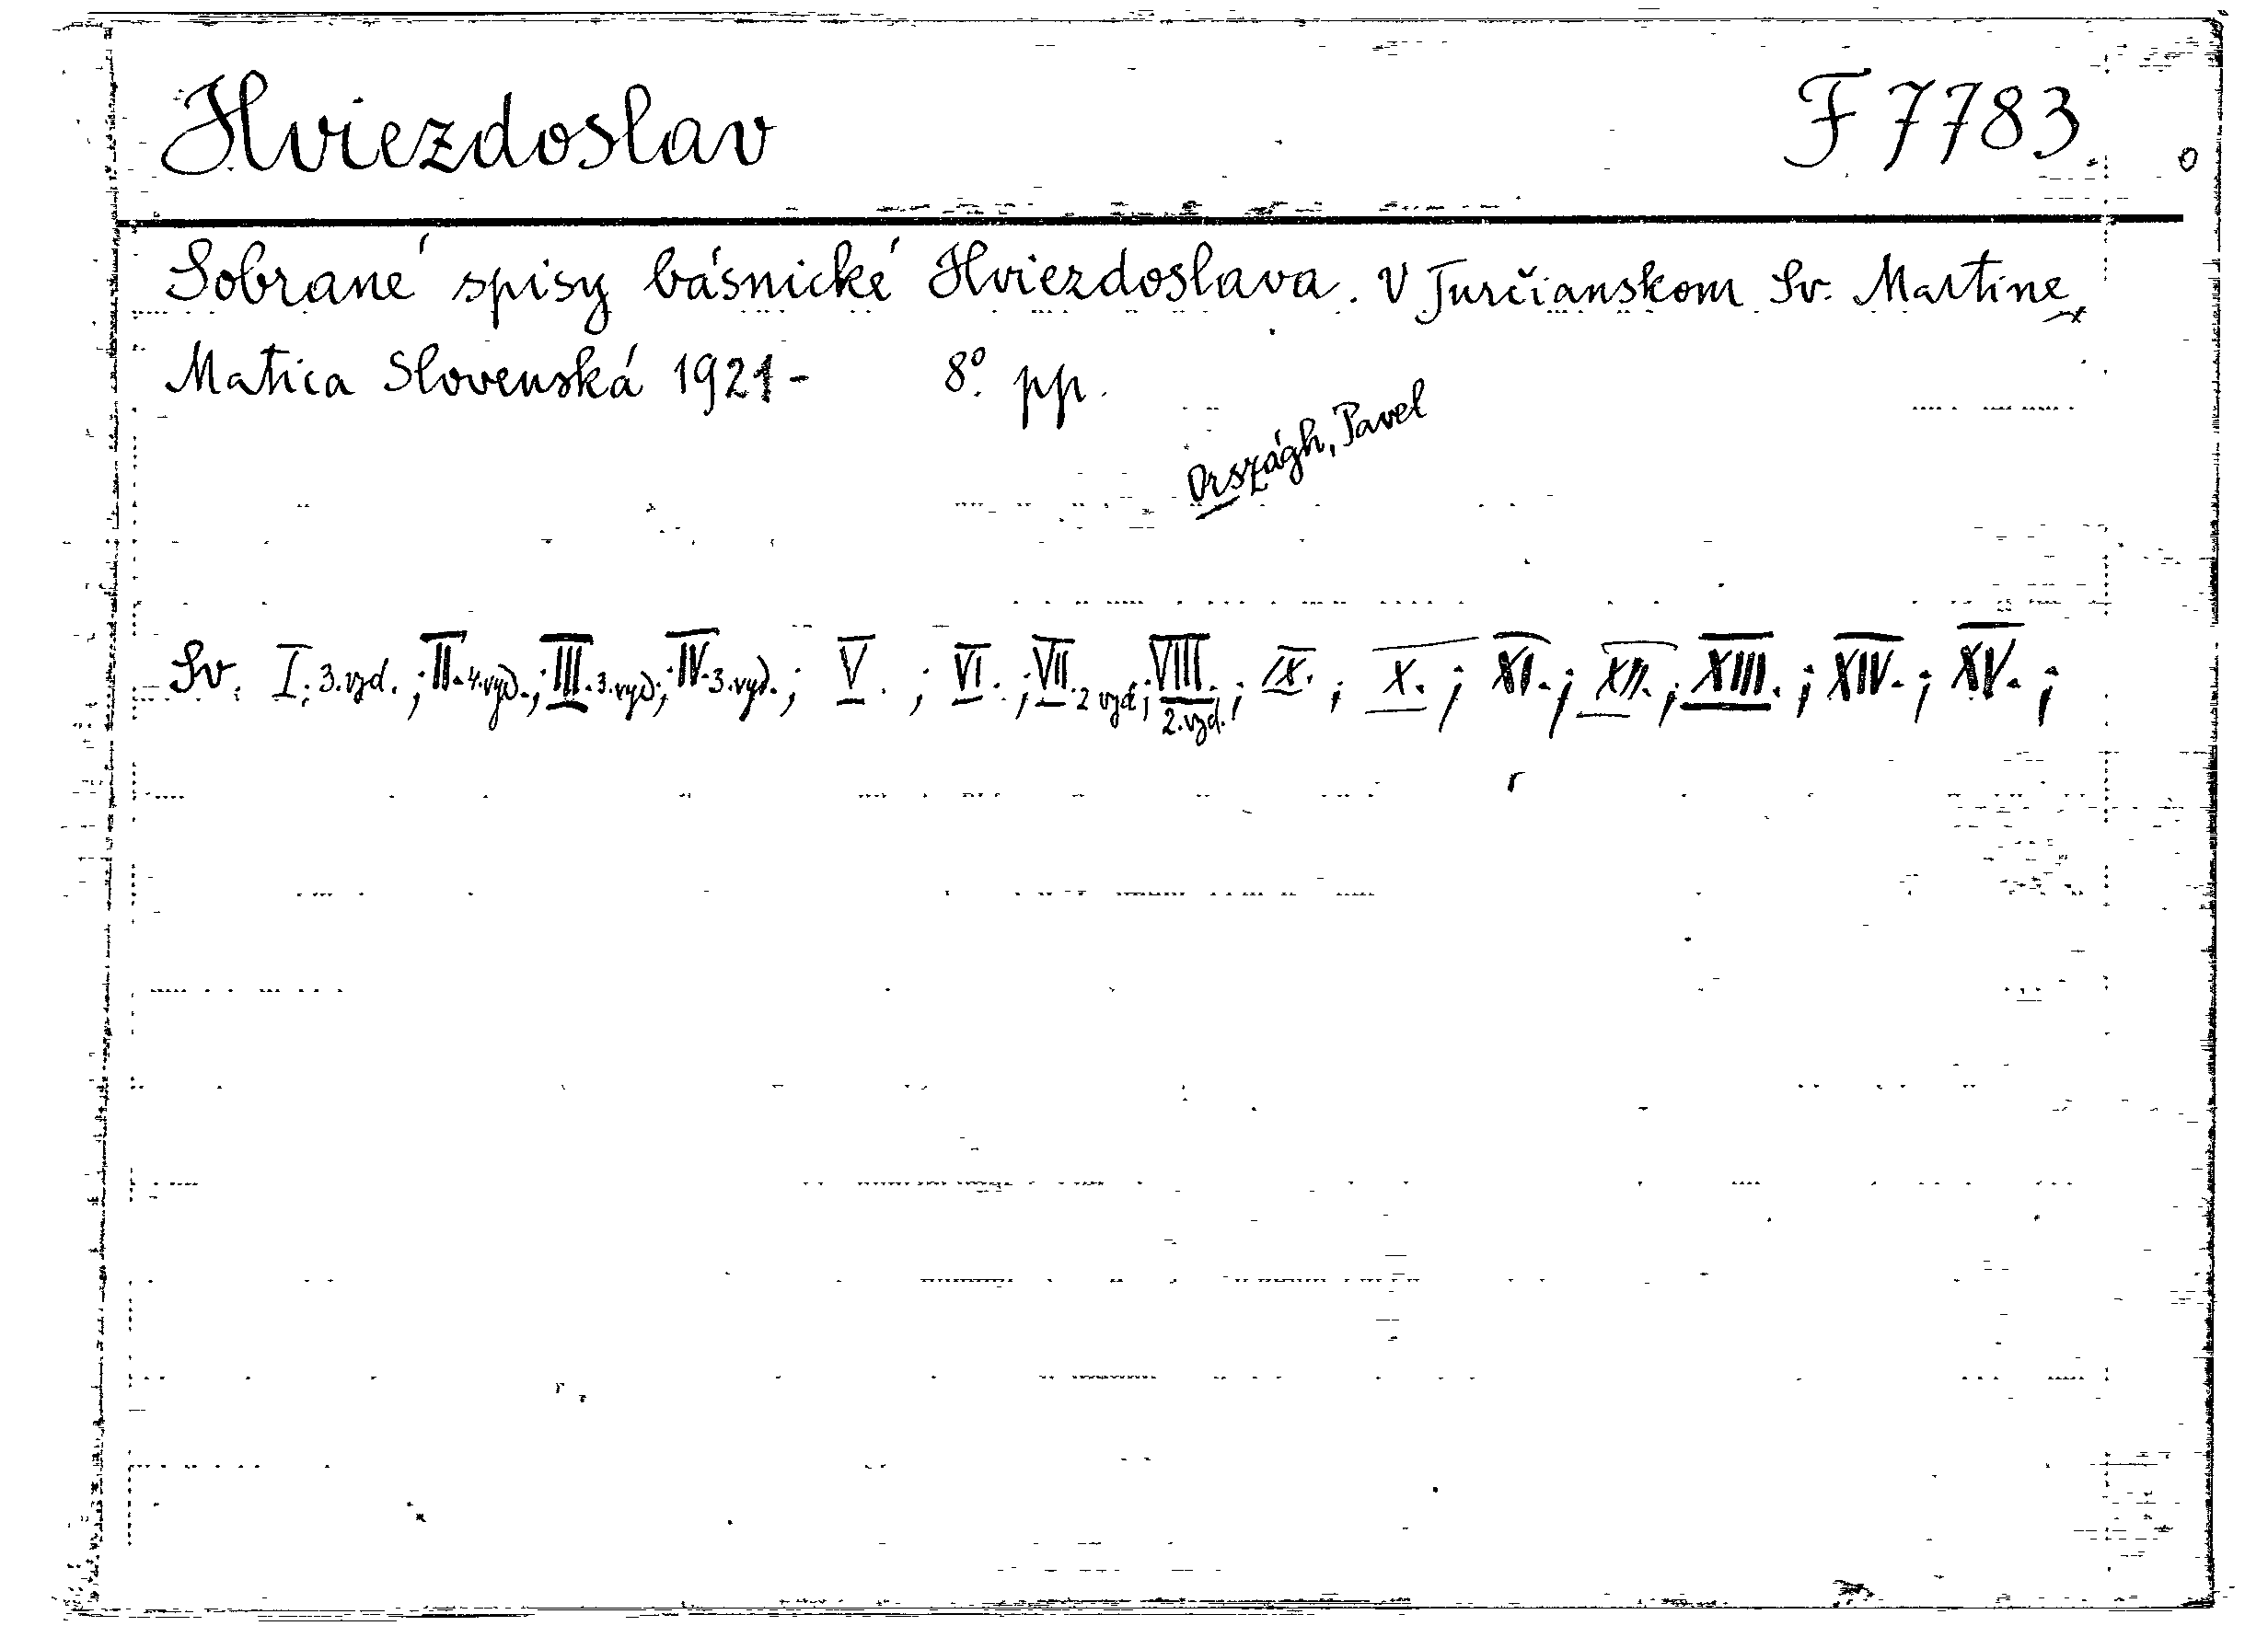 Hviezdoslav F 7783.
Sobrané spisy básnické Hviezdoslava. V Turčianskom Sv. Martine,
Matica Slovenská 1921- 8°. pp.
Országh, Pavel
Sv. I. 3.vyd. ; II. 4.vyd. ; III. 3.vyd ; IV. 3.vyd. ; V. ; VI. ; VII. 2 vyd ; VIII. 2.vyd. ; IX. ; X. ; XI. ; XII. ; XIII. ; XIV. ; XV. ;